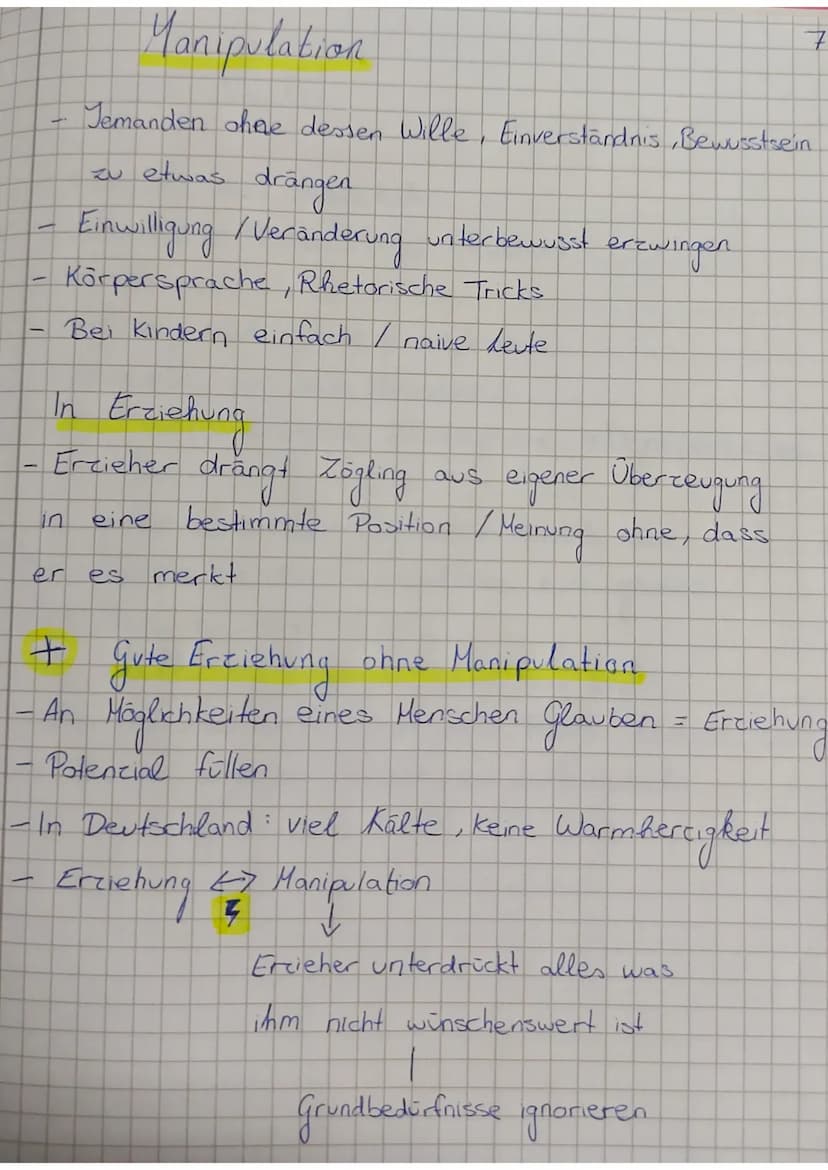 Manipulation
7
- Jemanden ohne dessen Wille, Einverständnis, Bewusstsein
zu etwas drängen
- Einwilligung / Veränderung unterbewusst erzwingen
- Körpersprache, Rhetorische Tricks
- Bei Kindern einfach / naive Leute
In Erziehung
- Erzieher drängt Zögling aus eigener Überzeugung
in eine bestimmte Position / Meinung ohne, dass
er es merkt
+ Gute Erziehung ohne Manipulation
- An Möglichkeiten eines Menschen Glauben = Erziehung
- Potenzial füllen
- In Deutschland: viel Kälte, keine Warmherzigkeit
- Erziehung <-> Manipulation
↓
Erzieher unterdrückt alles was
ihm nicht wünschenswert ist
|
Grundbedürfnisse ignorieren